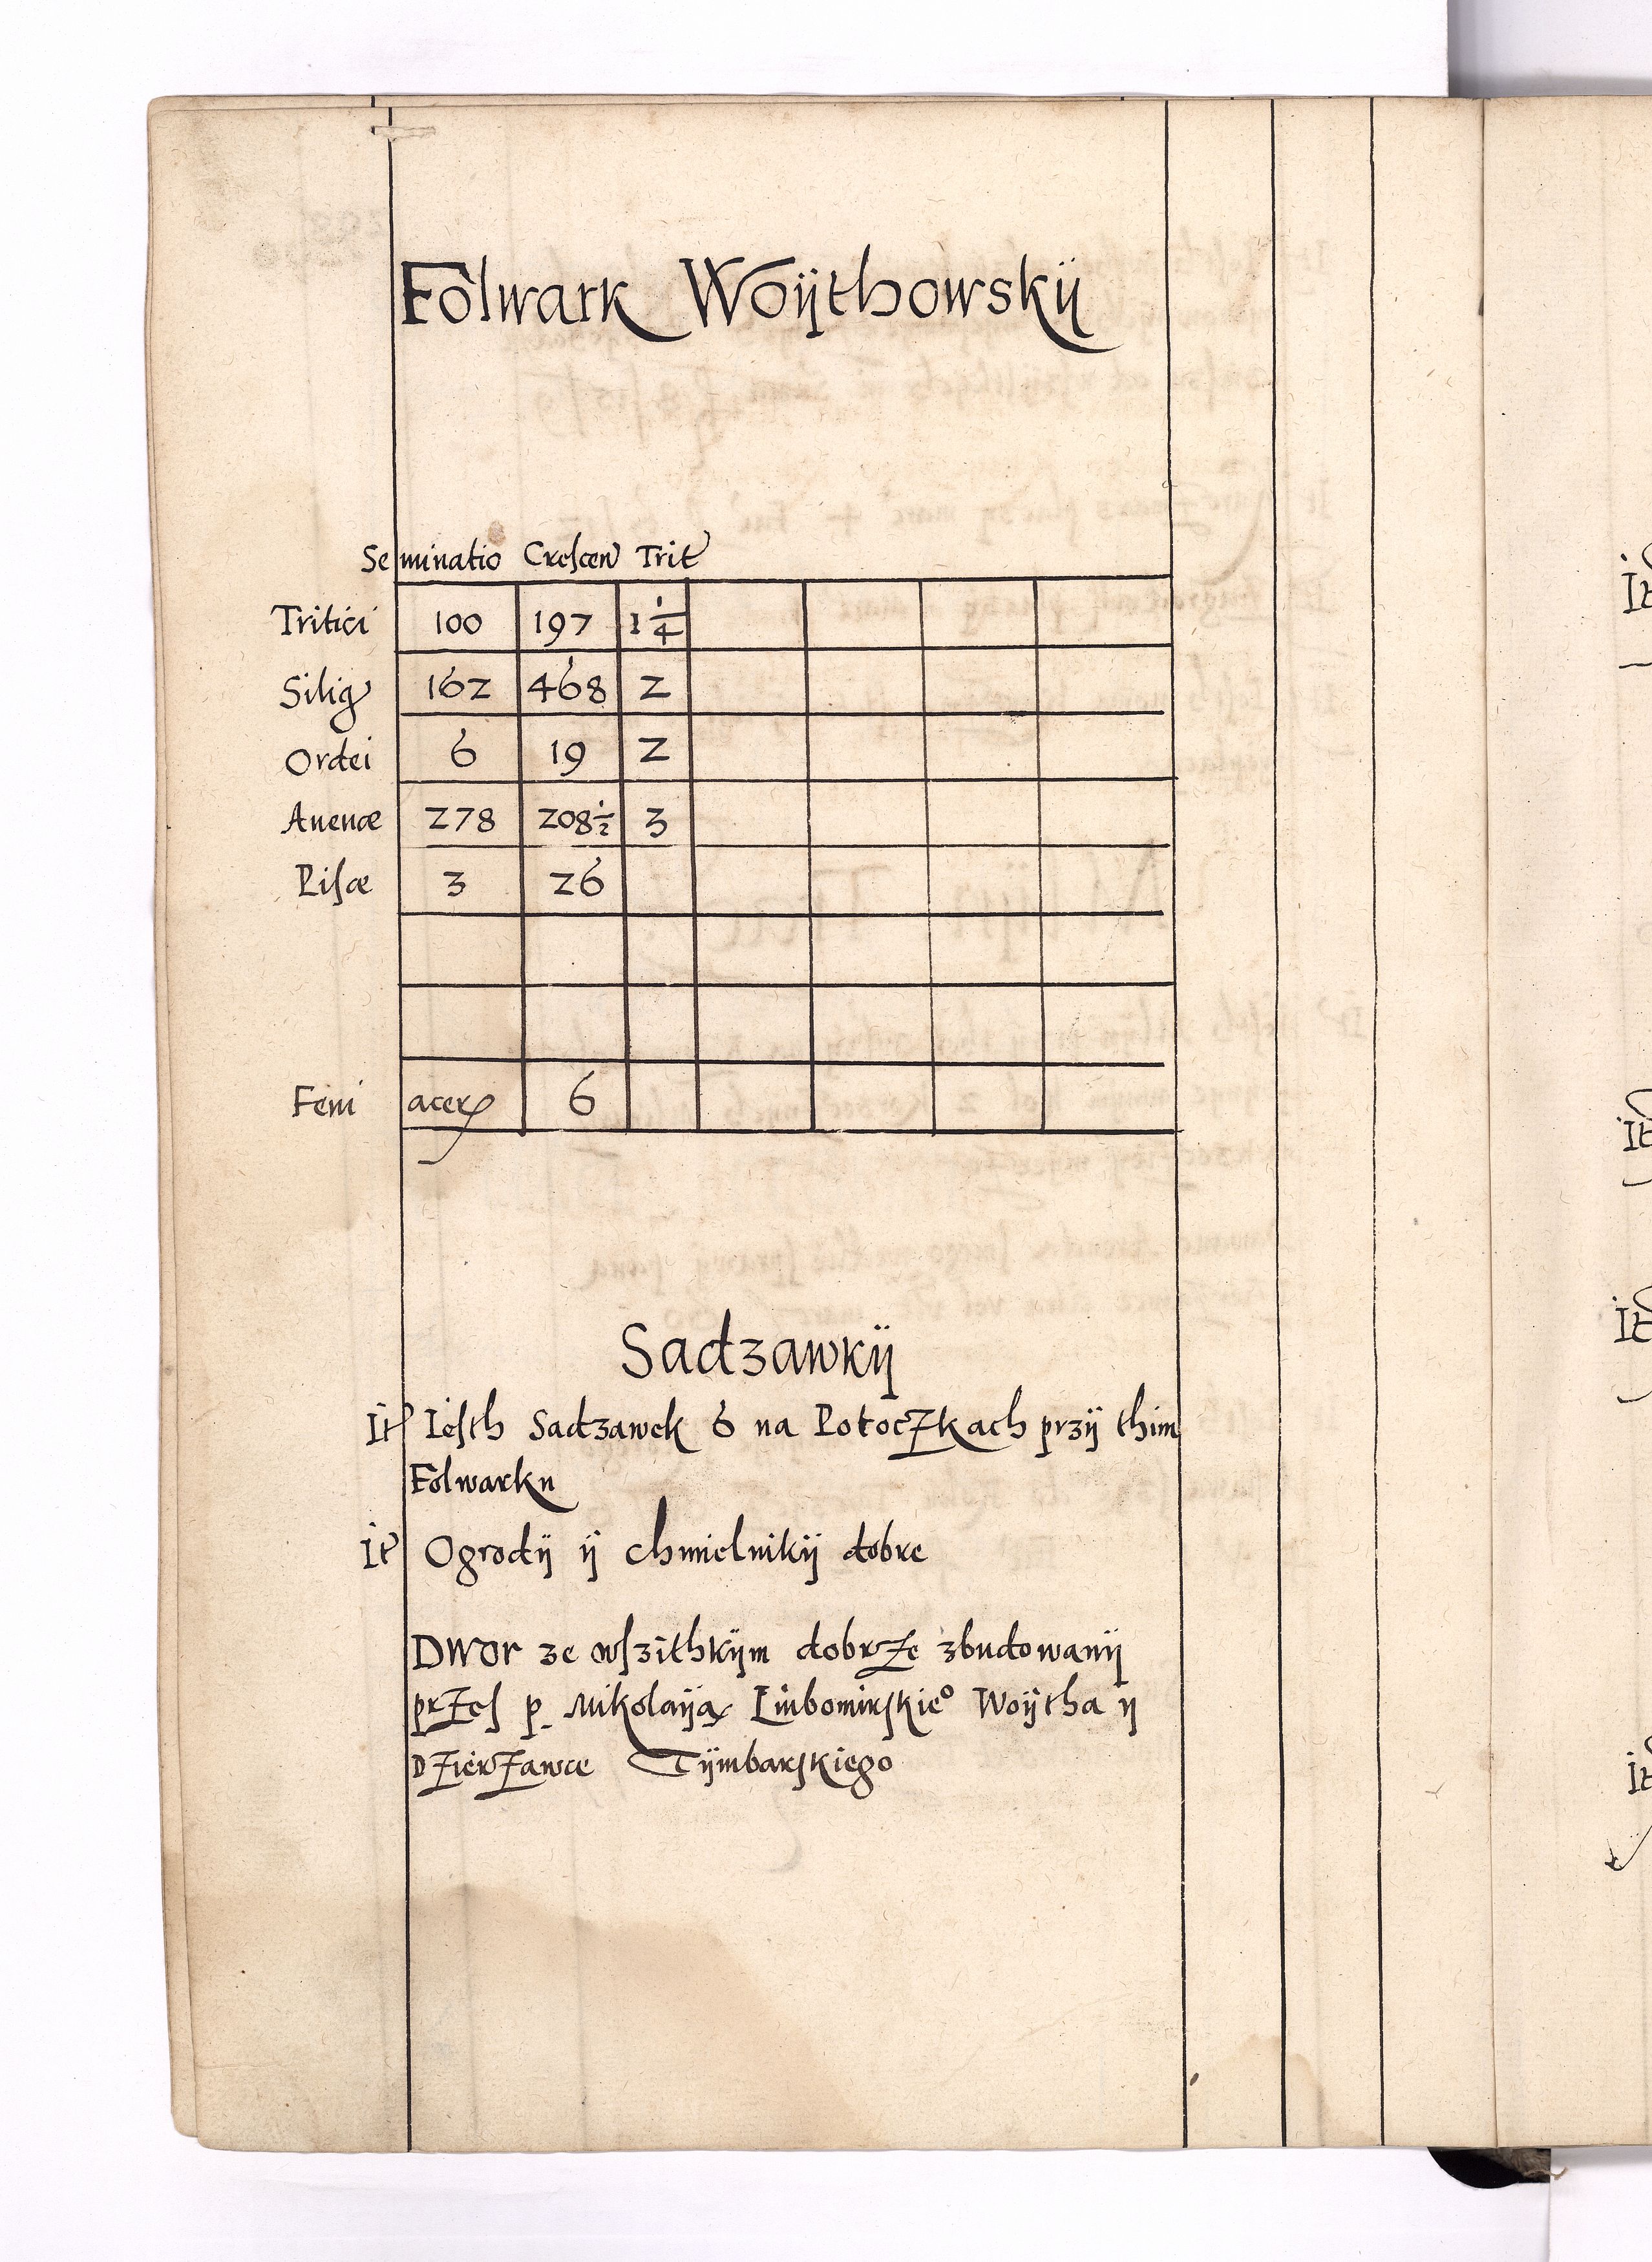 Folwark Woÿthowskÿ
Seminatio Crescen Trit
Tritici 100 197 1 1/4
Silig 162 468 2
Ordei 6 19 2
Auenæ 278 208 1/2 3
Pisæ 3 26
Feni acer 6
Sadzawkÿ
It Iesth Sadzawek 6 na Potoczkach przÿ thim
Folwarku
It Ogrodÿ ÿ chmielnikÿ dobre
Dwor ze wszithkÿm dobrze zbudowanÿ
przes p. Mikolaÿa Lubomirskieº Woÿtha ÿ
Dzierzawce Tÿmbarskiego